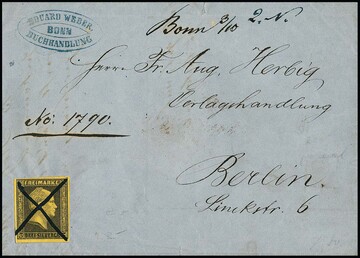 EDUARD WEBER
BONN
BUCHHANDLUNG
Bonn 3/10 2. N.
Herrn Fr. Aug. Herbig
Verlagshandlung
No: 1790.
Berlin.
Linckstr. 6
FREIMARKE